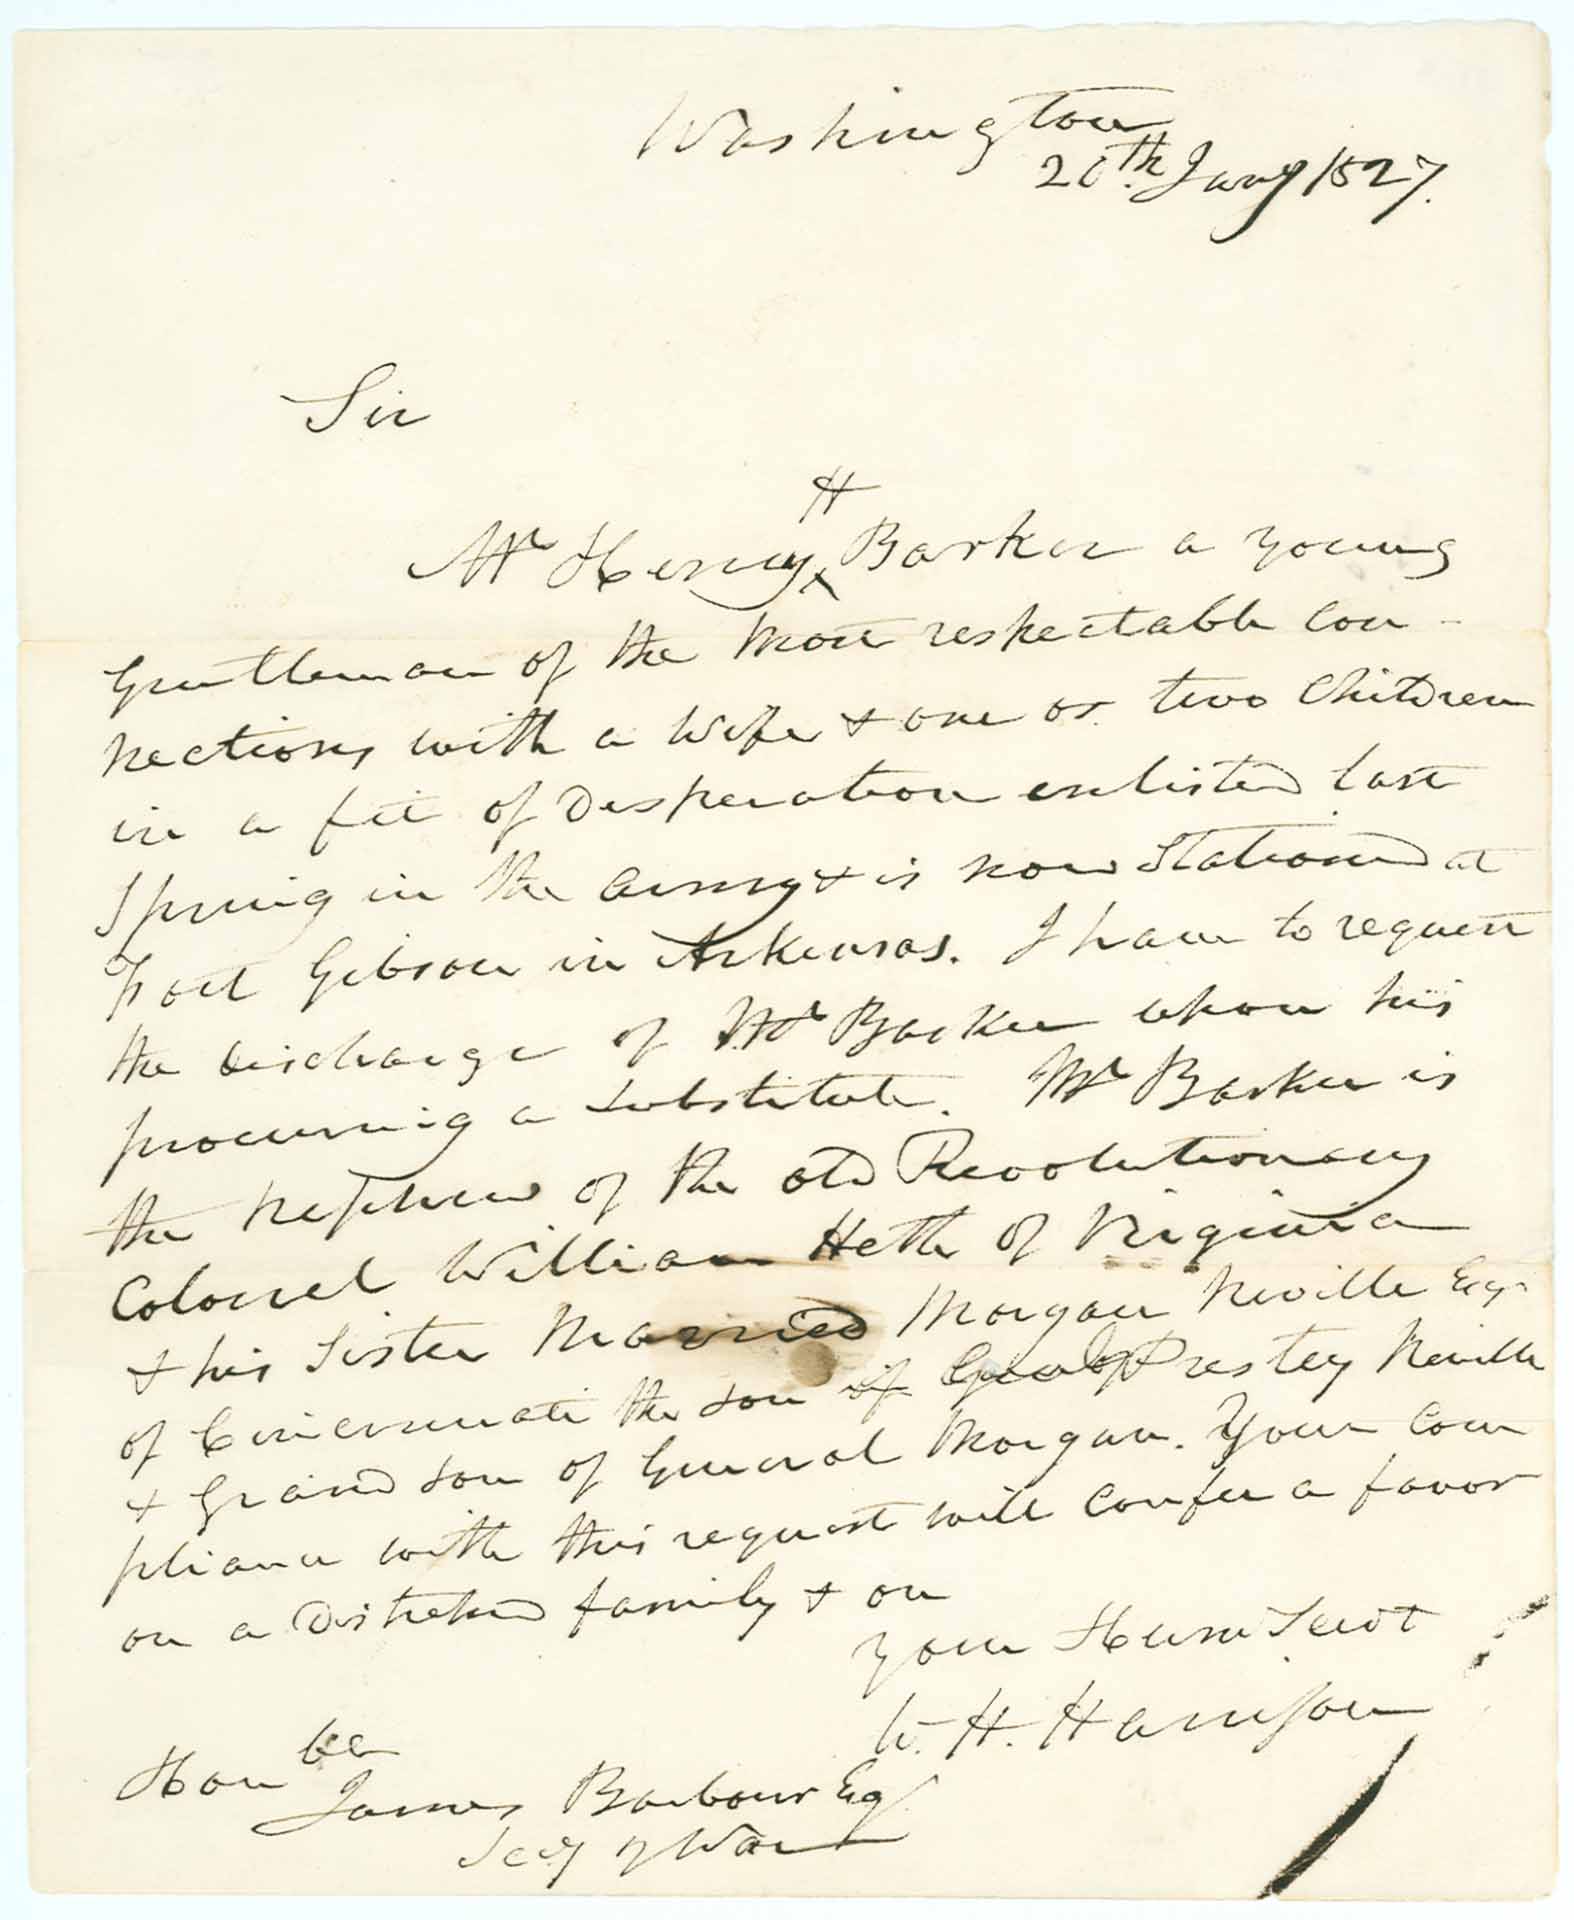 Washington
20th. Jany 1827.
Sir
H
Mr Henry ^ Barker a young
Gentleman of the most respectable con-
nections with a Wife & one or two Children
in a fit of Desperation enlisted last
Spring in the Army & is now Stationed at
Fort Gibson in Arkensas. I have to request
the discharge of Mr Barker upon his
procuring a substitute. Mr Barker is
the Nephew of the old Revolutionary
Colonel William Heth of Virginia
& his Sister Married Morgan Neville Esqr
of Cincinnati the son of Genl Prestey Neville
& Grand son of General Morgan. Your Com
pliance with this request will confer a favor
on a Distressed family & on
Your Hum Servt
W. H. Harrison
Honble
James Barbour Esq.
Secy of War